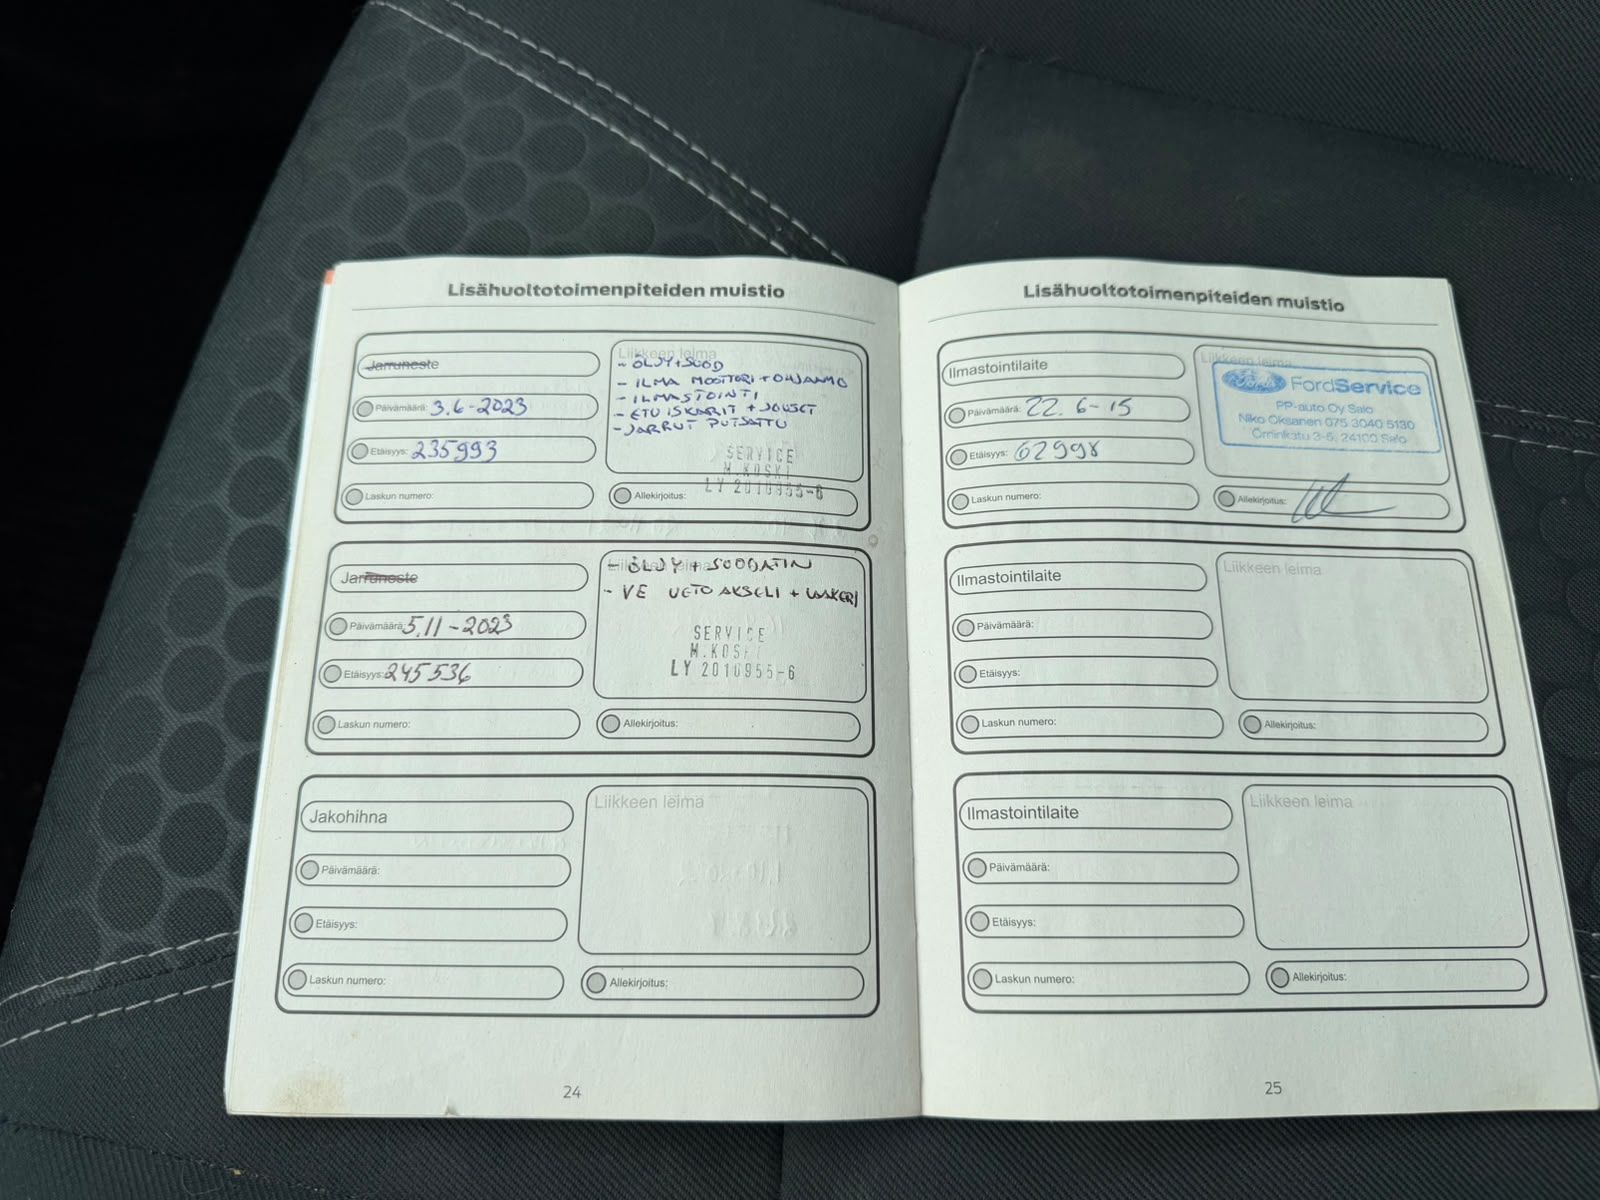 Lisähuoltotoimenpiteiden muistio
Jarruneste
Päivämäärä: 3.6-2023
Etäisyys: 235993
Laskun numero:
Liikkeen leima
- ÖLJY+SUOD
- ILMA MOOTTORI + OHJAAMO
- ILMASTOINTI
- ETU ISKARIT + JOUSET
- JARRUT PUTSATTU
SERVICE
M.KOSKI
LY 2010955-6
Allekirjoitus:
Jarruneste
Päivämäärä: 5.11-2023
Etäisyys: 245536
Laskun numero:
Liikkeen leima
- ÖLJY + SUODATIN
- VE VETOAKSELI + LAAKERI
SERVICE
M.KOSKI
LY 2010955-6
Allekirjoitus:
Jakohihna
Päivämäärä:
Etäisyys:
Laskun numero:
Liikkeen leima
Allekirjoitus:
24
Lisähuoltotoimenpiteiden muistio
Ilmastointilaite
Päivämäärä: 22.6-15
Etäisyys: 62998
Laskun numero:
Liikkeen leima
Ford FordService
PP-auto Oy Salo
Niko Oksanen 075 3040 5130
Örninkatu 3-5, 24100 Salo
Allekirjoitus:
Ilmastointilaite
Päivämäärä:
Etäisyys:
Laskun numero:
Liikkeen leima
Allekirjoitus:
Ilmastointilaite
Päivämäärä:
Etäisyys:
Laskun numero:
Liikkeen leima
Allekirjoitus:
25